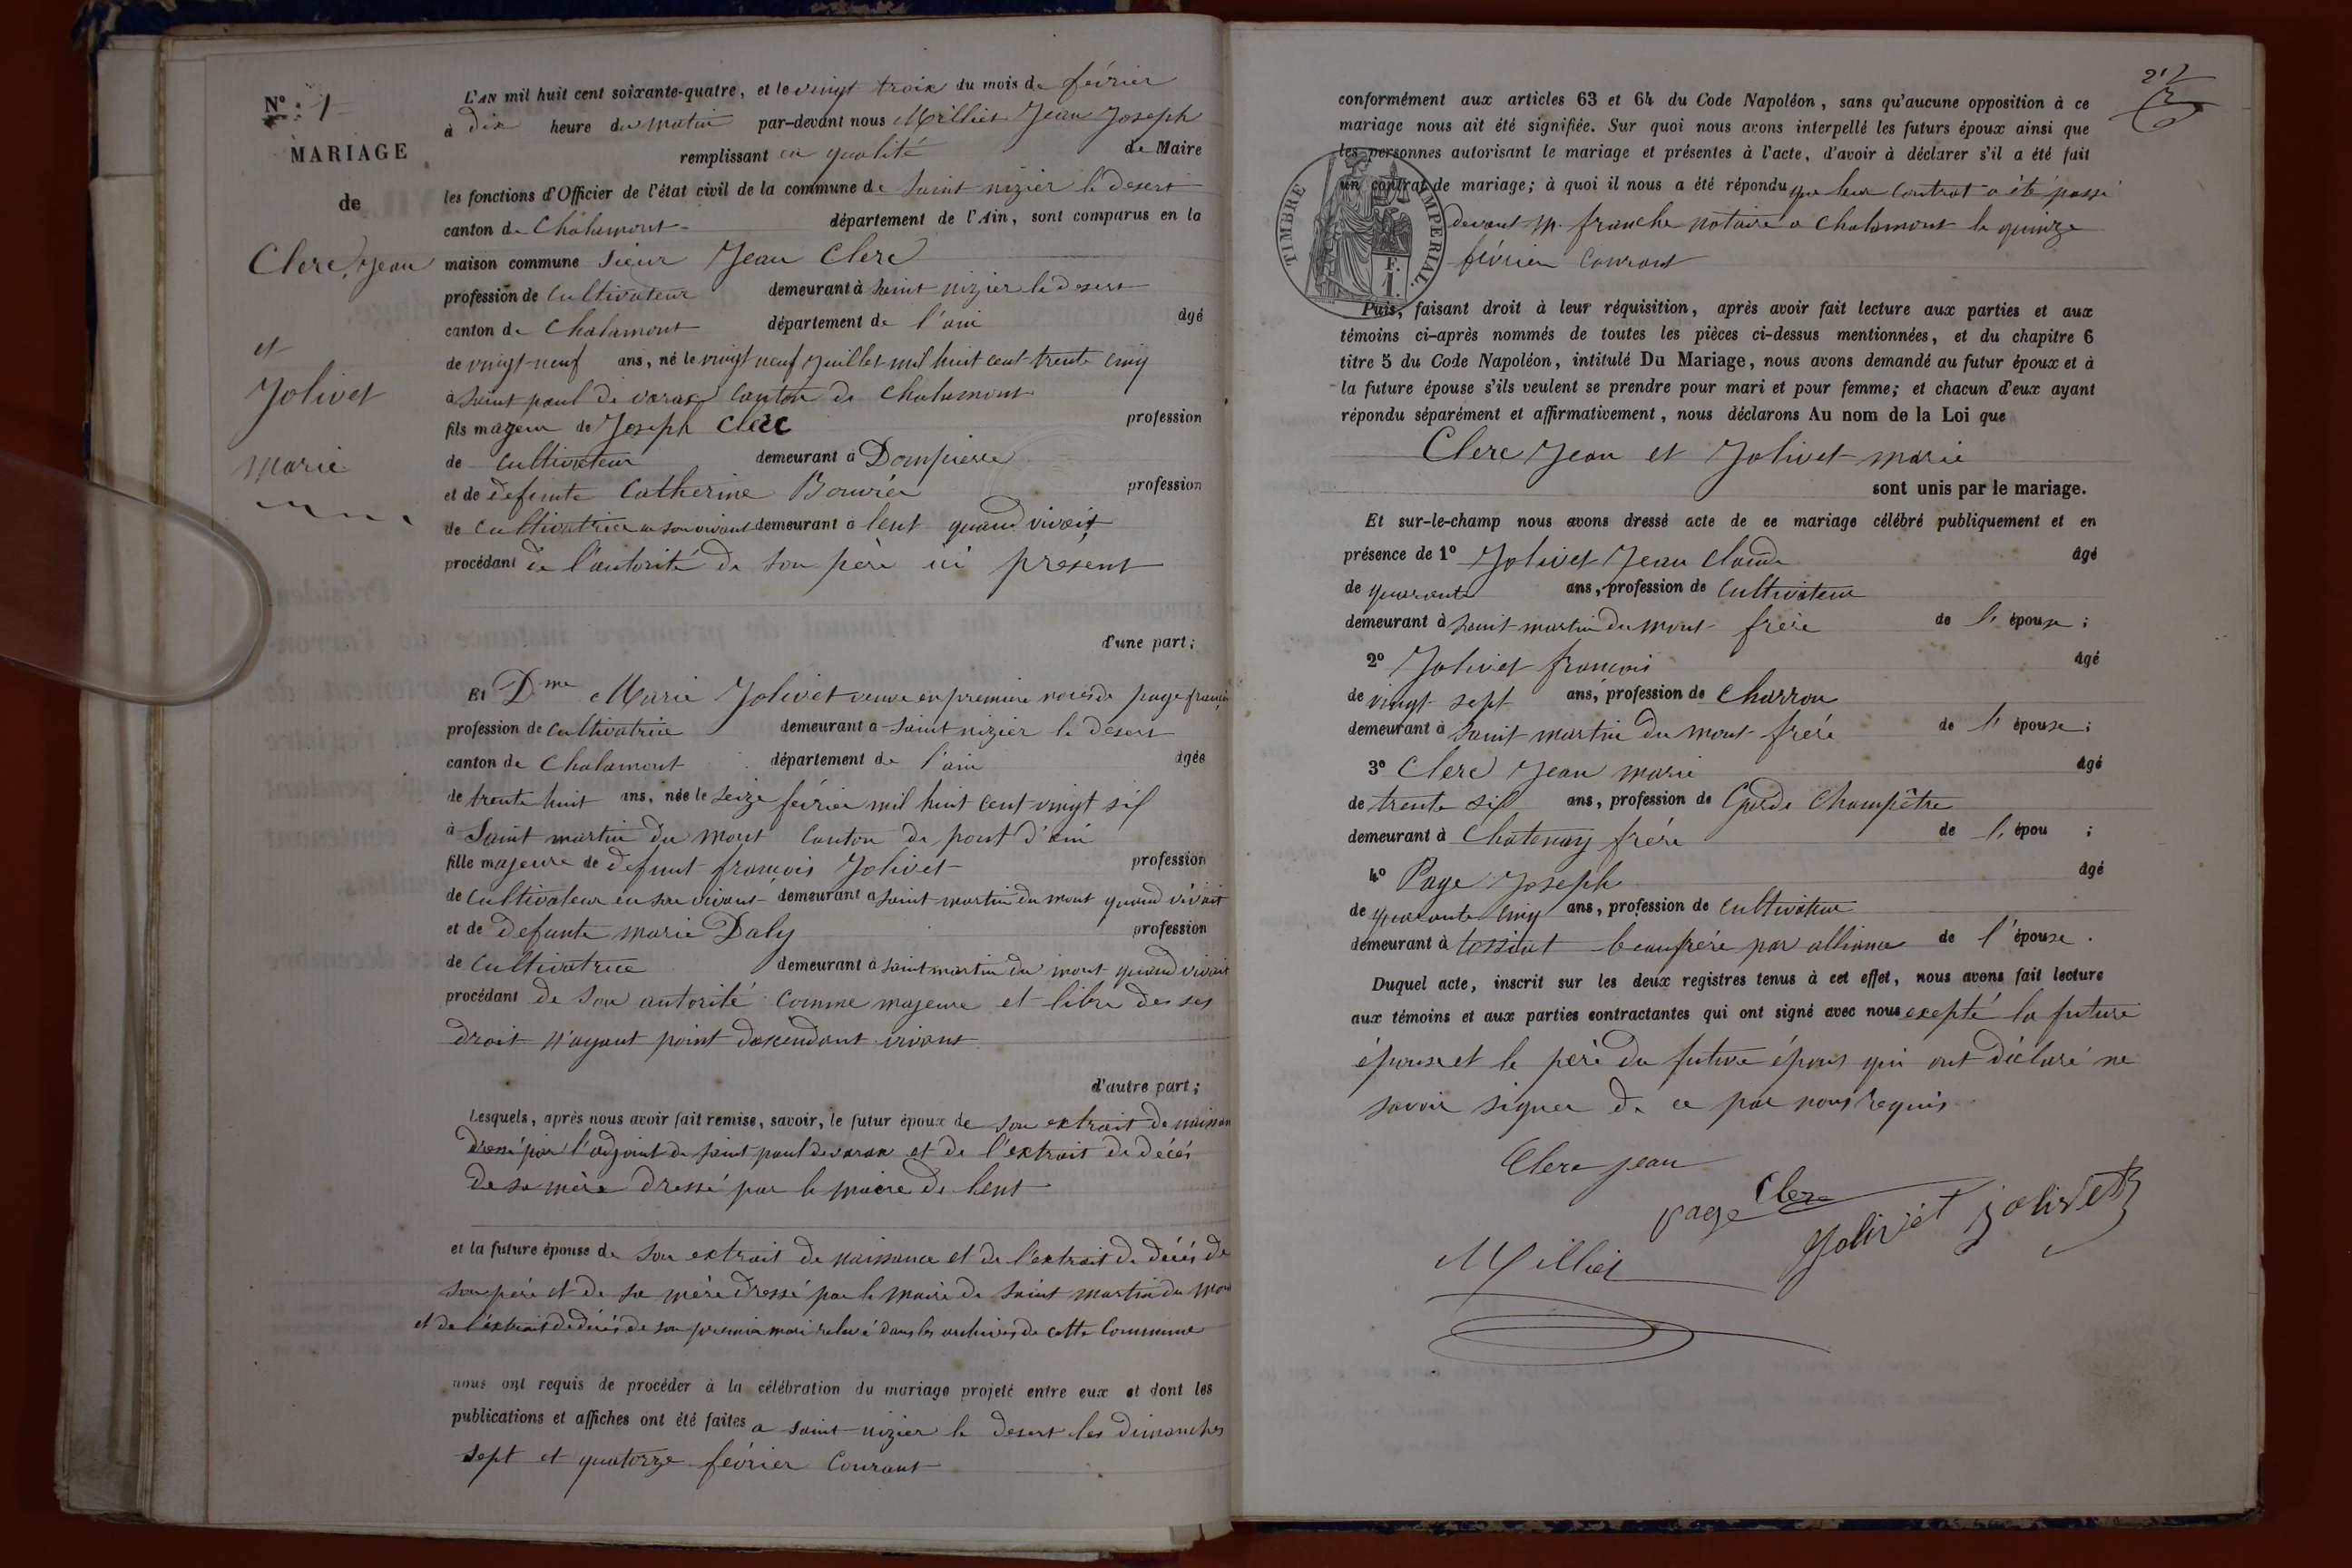 N° : 1
MARIAGE
de
Clerc, Jean
et
Jolivet
marie
L'AN mil huit cent soixante-quatre, et le vingt trois du mois de février
à dix heure du matin par-devant nous Milliet Jean Joseph
remplissant en qualité de Maire
les fonctions d'Officier de l'état civil de la commune de Saint nizier le desert
canton de Chalamont département de l'Ain, sont comparus en la
maison commune Sieur Jean Clerc
profession de Cultivateur demeurant à Saint nizier le desert
canton de Chalamont département de l'ain âgé
de vingt neuf ans, né le vingt neuf Juillet mil huit cent trente cinq
à Saint paul de varax Canton de Chalamont
fils majeur de Joseph Clerc profession
de Cultivateur demeurant à Dompierre
et de defunte Catherine Bouvier profession
de Cultivatrice en son vivant demeurant à lent quand vivait
procédant de l'autorité de son père ici présent
d'une part;
Et Dme Marie Jolivet veuve en premiere noces de page françois
profession de Cultivatrice demeurant a Saint nizier le desert
canton de Chalamont département de l'ain âgée
de trente huit ans, née le Seize février mil huit cent vingt six
à Saint martin du mont Canton de pont d'ain
fille majeure de defunt françois Jolivet profession
de Cultivateur en son vivant demeurant a Saint martin du mont quand vivait
et de defunte marie Daly profession
de Cultivatrice demeurant à Saint martin du mont quand vivait
procédant de son autorité Comme majeure et libre de ses
droit n'ayant point dascendant vivant
d'autre part;
Lesquels, après nous avoir fait remise, savoir, le futur époux de son extrait de naissan
dressé par l'adjoint de Saint paul de varax et de l'extrait de décés
de sa mère dressé par le maire de lent
et la future épouse de son extrait de naissance et de l'extrait de décés de
son père et de sa mère dressé par le maire de Saint martin du mon
et de l'extrait de décés de son premier mari relevé dans les archives de cette Commune
nous ont requis de procéder à la célébration du mariage projeté entre eux et dont les
publications et affiches ont été faites a Saint nizier le desert les dimanches
sept et quatorze février Courant
conformément aux articles 63 et 64 du Code Napoléon, sans qu'aucune opposition à ce
mariage nous ait été signifiée. Sur quoi nous avons interpellé les futurs époux ainsi que
les personnes autorisant le mariage et présentes à l'acte, d'avoir à déclarer s'il a été fait
un contrat de mariage; à quoi il nous a été répondu que leur Contrat a été passé
devant m. franche notaire a Chalamont le quinze
février Courant
TIMBRE IMPERIAL.
F.
1.
Puis, faisant droit à leur réquisition, après avoir fait lecture aux parties et aux
témoins ci-après nommés de toutes les pièces ci-dessus mentionnées, et du chapitre 6
titre 5 du Code Napoléon, intitulé Du Mariage, nous avons demandé au futur époux et à
la future épouse s'ils veulent se prendre pour mari et pour femme; et chacun d'eux ayant
répondu séparément et affirmativement, nous déclarons Au nom de la Loi que
Clerc Jean et Jolivet marie
sont unis par le mariage.
Et sur-le-champ nous avons dressé acte de ce mariage célébré publiquement et en
présence de 1° Jolivet Jean Claude âgé
de quarante ans, profession de Cultivateur
demeurant à Saint martin du mont frère de l'épouse;
2° Jolivet francois âgé
de vingt sept ans, profession de Charron
demeurant à Saint martin du mont frère de l'épouse;
3° Clerc Jean marie âgé
de trente six ans, profession de Garde Champêtre
demeurant à Chatenay frère de l'épou ;
4° Page Joseph âgé
de quarante cinq ans, profession de Cultivateur
demeurant à tossiat beaufrère par alliance de l'épouse.
Duquel acte, inscrit sur les deux registres tenus à cet effet, nous avons fait lecture
aux témoins et aux parties contractantes qui ont signé avec nous excepté la future
épouse et le père du future époux qui ont déclaré ne
savoir signer de ce par nous requis
Clerc jean
Clerc
page
Jolivet
jolivet
Milliet